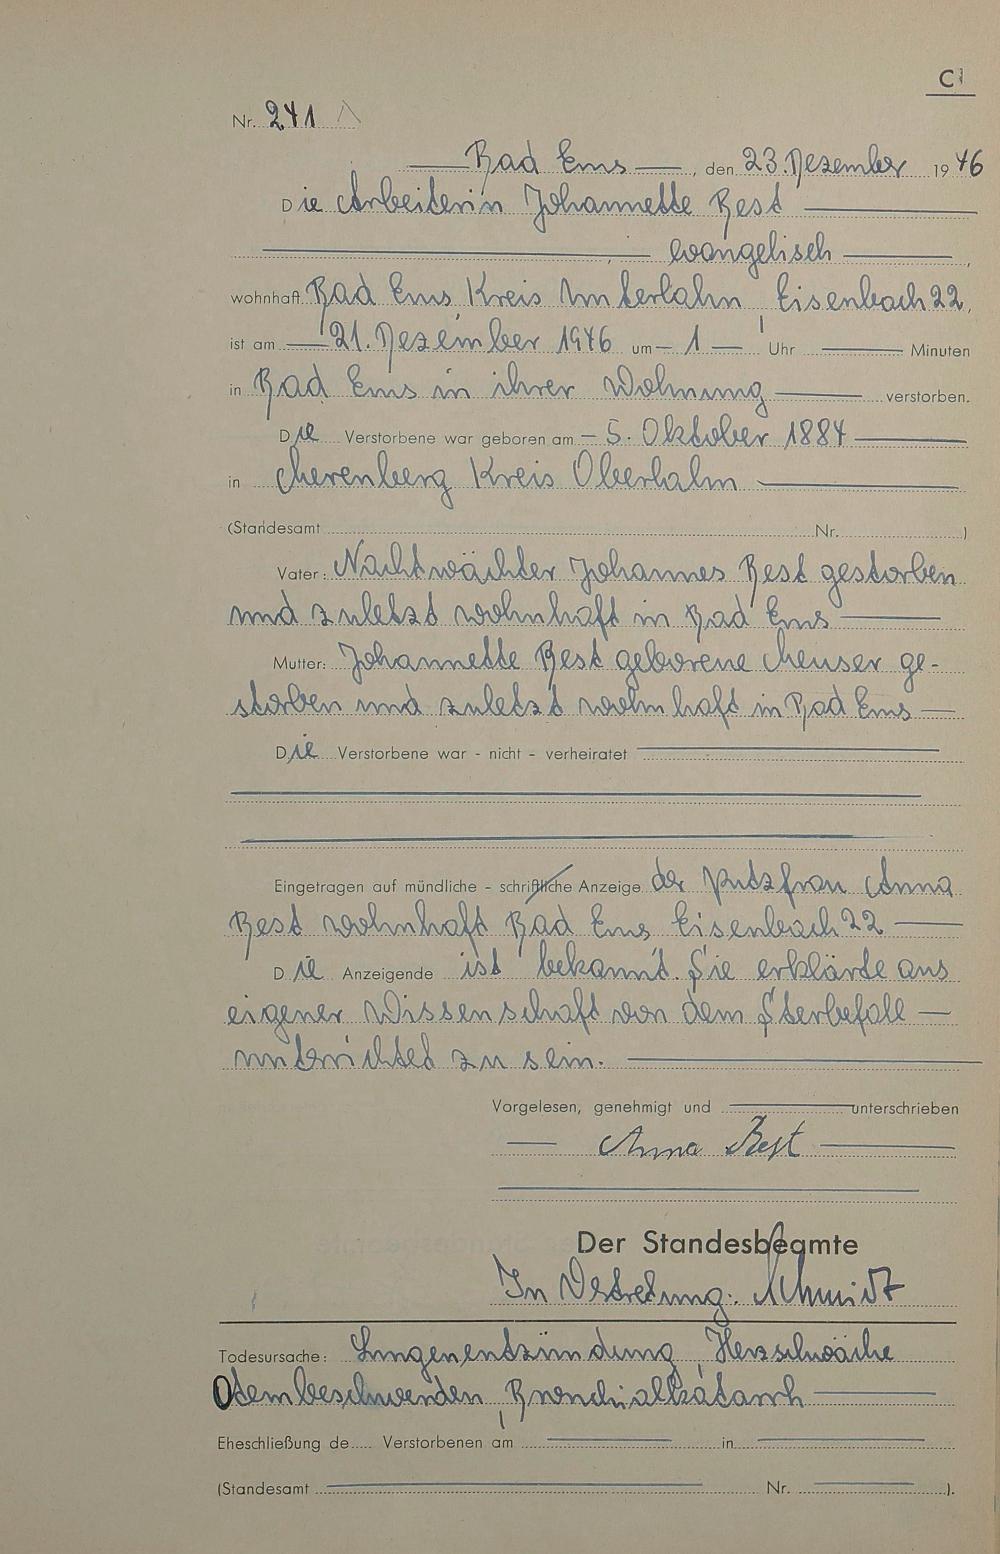 C
Nr. 241
Bad Ems, den 23. Dezember 1946
Die Arbeiterin Johannette Best
evangelisch,
wohnhaft Bad Ems, Kreis Unterlahn, Eisenbach 22,
ist am 21. Dezember 1946 um 1 Uhr Minuten
in Bad Ems in ihrer Wohnung verstorben.
Die Verstorbene war geboren am 5. Oktober 1884
in Merenberg Kreis Oberlahn
(Standesamt Nr. )
Vater: Nachtwächter Johannes Best gestorben
und zuletzt wohnhaft in Bad Ems
Mutter: Johannette Best geborene Meuser ge-
storben und zuletzt wohnhaft in Bad Ems
Die Verstorbene war - nicht - verheiratet
Eingetragen auf mündliche - schriftliche Anzeige der Putzfrau Anna
Best wohnhaft Bad Ems, Eisenbach 22
Die Anzeigende ist bekannt. Sie erklärte aus
eigener Wissenschaft von dem Sterbefall
unterrichtet zu sein.
Vorgelesen, genehmigt und unterschrieben
Anna Best
Der Standesbeamte
In Vertretung: Schmidt
Todesursache: Lungenentzündung, Herzschwäche
Atembeschwerden, Bronchialkatarrh
Eheschließung de Verstorbenen am in
(Standesamt Nr. ).